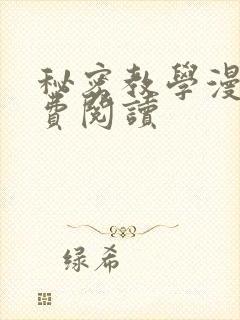 秘密教學漫
費閱讀
绿希